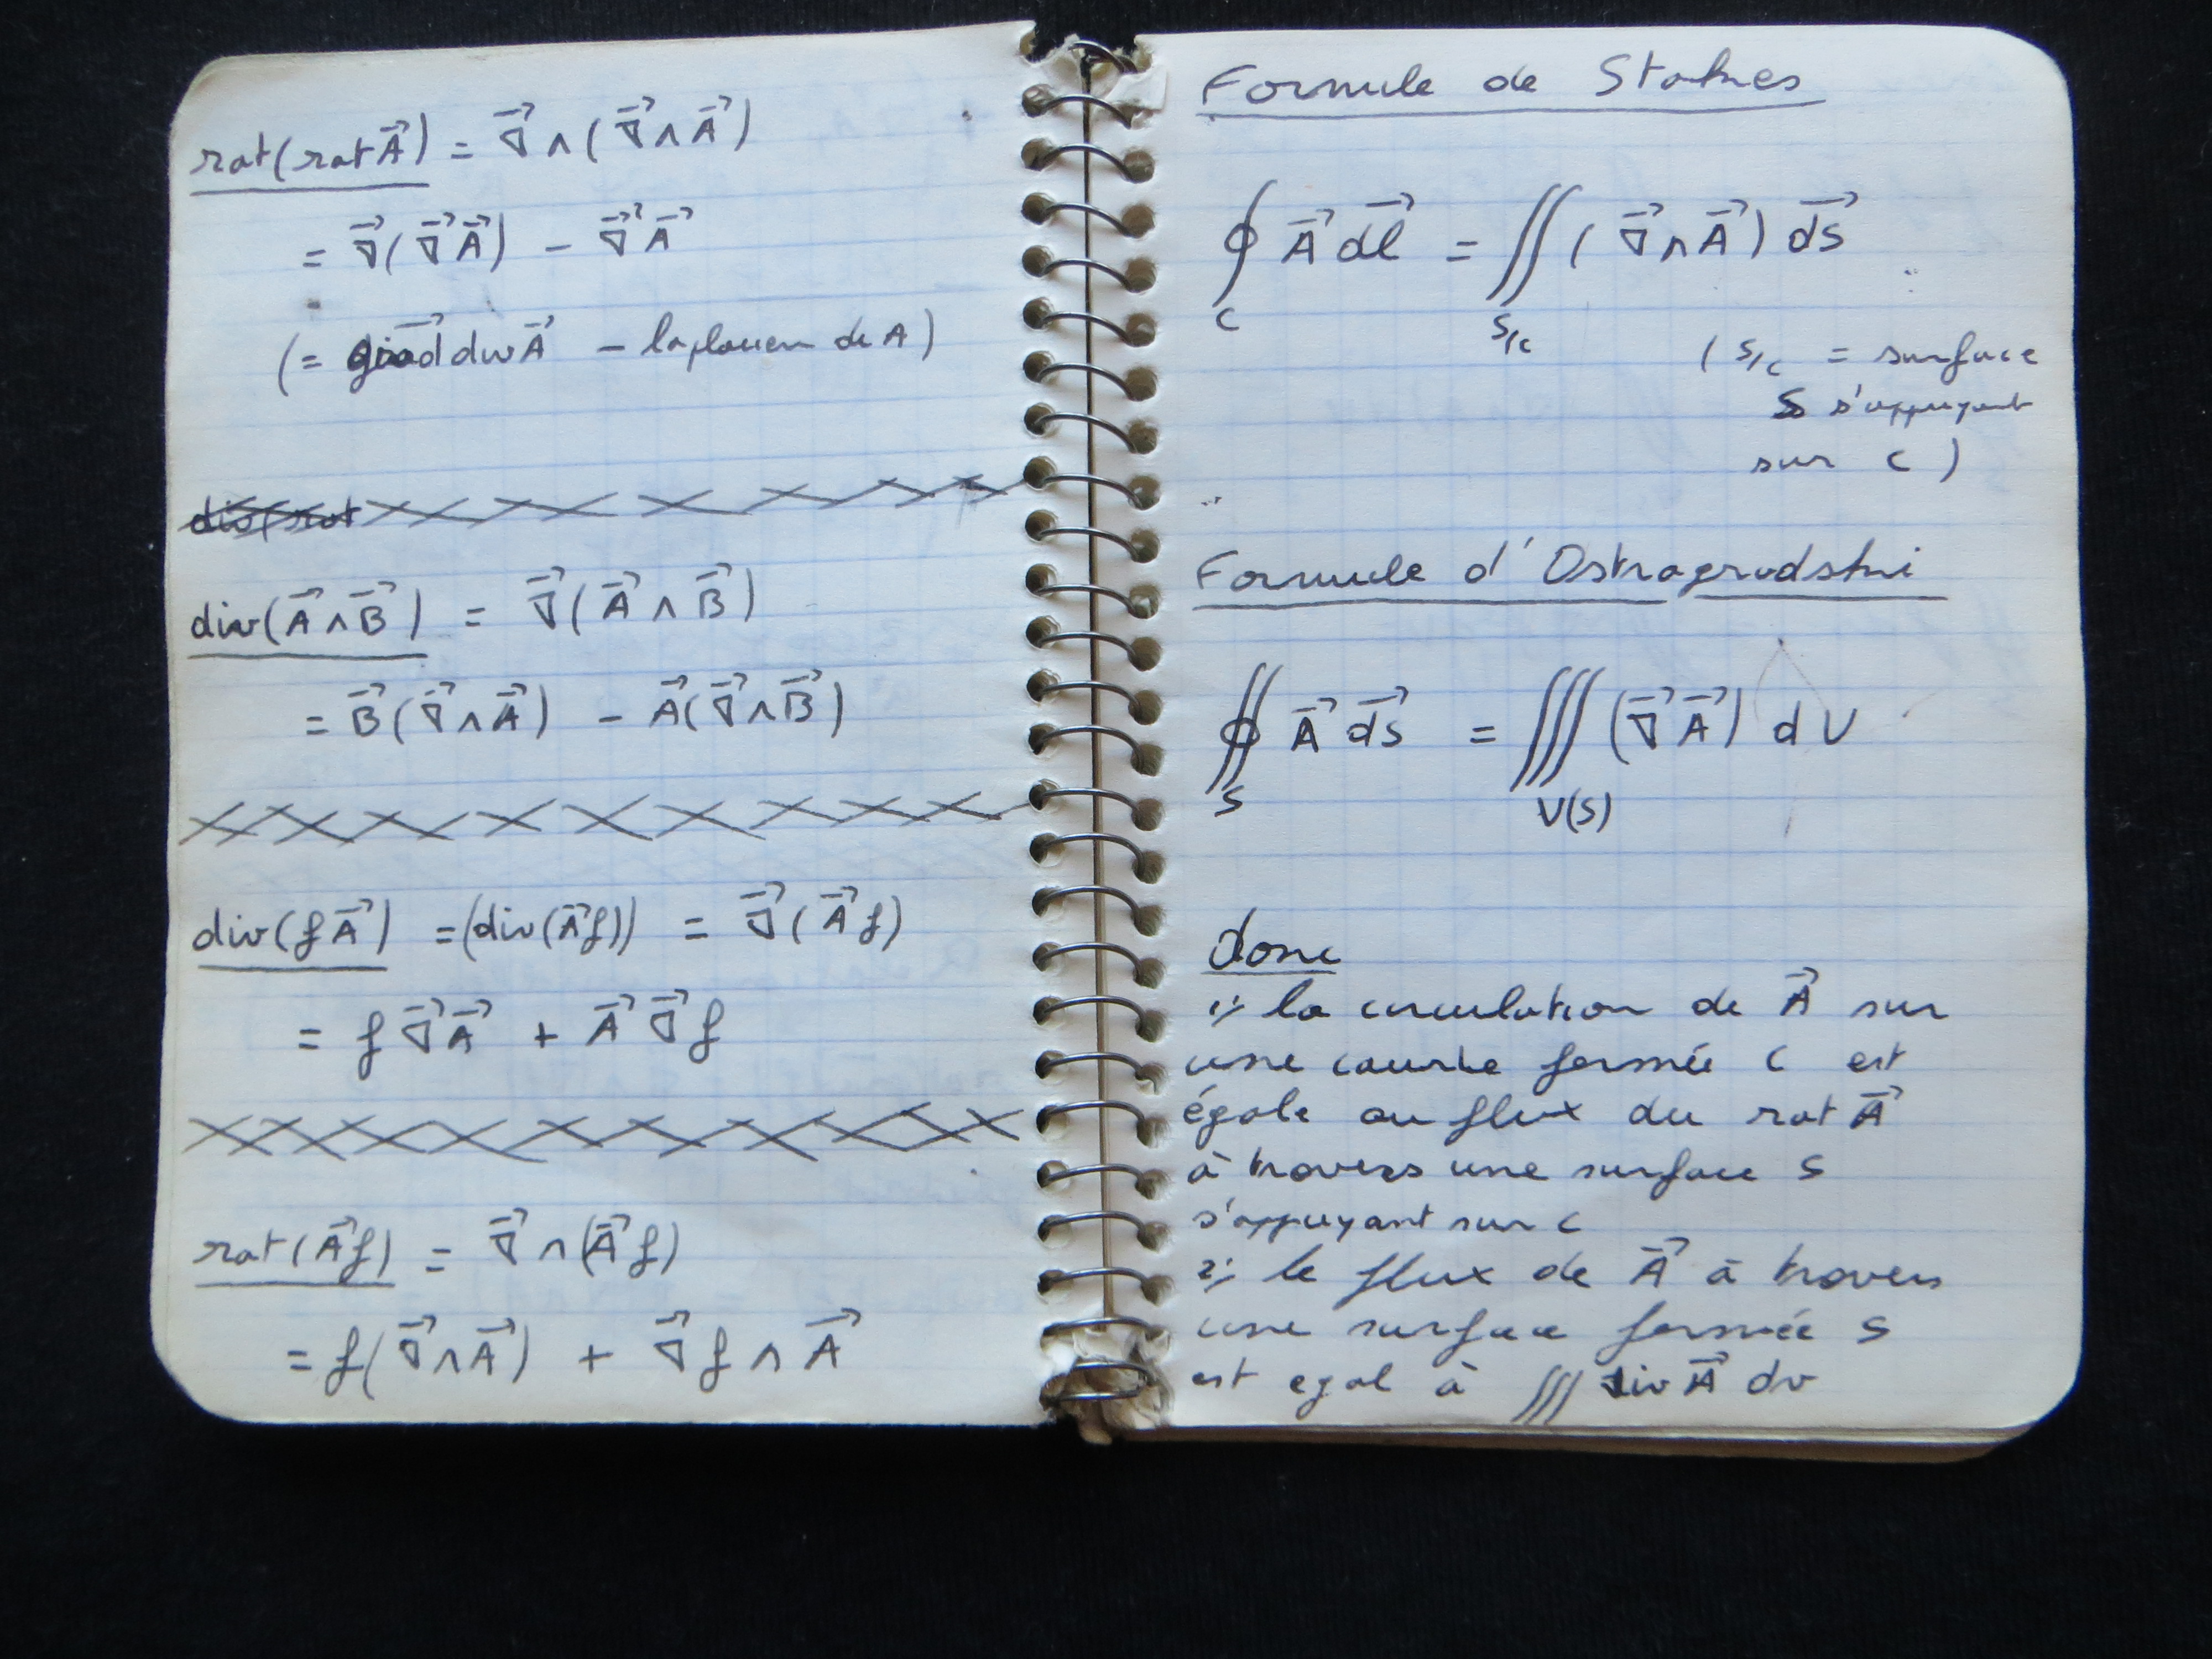 rot(rot A⃗) = ∇⃗ ∧ (∇⃗ ∧ A⃗)
= ∇⃗(∇⃗ A⃗) − ∇⃗² A⃗
(= grad⃗ div A⃗ − laplacien de A)
div(rot
div(A⃗ ∧ B⃗) = ∇⃗(A⃗ ∧ B⃗)
= B⃗(∇⃗ ∧ A⃗) − A⃗(∇⃗ ∧ B⃗)
div(f A⃗) = (div(A⃗ f)) = ∇⃗(A⃗ f)
= f ∇⃗ A⃗ + A⃗ ∇⃗ f
rot(A⃗ f) = ∇⃗ ∧ (A⃗ f)
= f(∇⃗ ∧ A⃗) + ∇⃗ f ∧ A⃗
Formule de Stokes
∮ A⃗ dl⃗ = ∬ (∇⃗ ∧ A⃗) ds⃗
C S/c
(S/c = surface
S s'appuyant
sur C)
Formule d'Ostragradski
∯ A⃗ ds⃗ = ∭ (∇⃗ A⃗) dV
S V(S)
donc
1/ la circulation de A⃗ sur
une courbe fermée C est
égale au flux du rot A⃗
à travers une surface S
s'appuyant sur C
2/ le flux de A⃗ à travers
une surface fermée S
est egal à ∭ div A⃗ dv